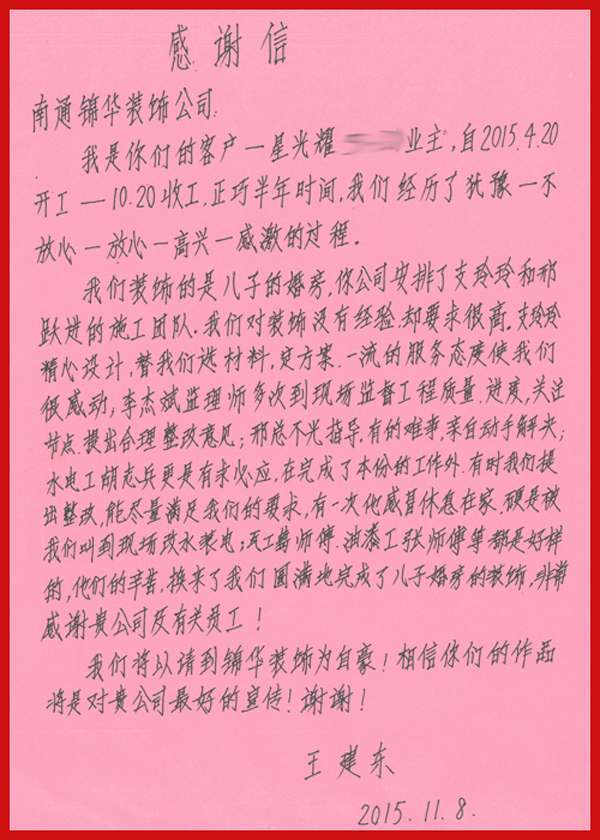 感谢信
南通锦华装饰公司:
我是你们的客户一星光耀 业主,自2015.4.20
开工—10.20收工,正巧半年时间,我们经历了犹豫一不
放心一放心一高兴一感激的过程。
我们装饰的是儿子的婚房,你公司安排了支玲玲和邢
跃进的施工团队.我们对装饰没有经验.却要求很高.支玲玲
精心设计,替我们选材料,定方案.一流的服务态度使我们
很感动;李杰斌监理师多次到现场监督工程质量.进度,关注
节点.提出合理整改意见;邢总不光指导.有的难事,亲自动手解决;
水电工胡志兵更是有求必应,在完成了本份的工作外.有时我们提
出整改,能尽量满足我们的要求,有一次他感冒休息在家.硬是被
我们叫到现场改水装电;瓦工葛师傅.油漆工张师傅等都是好样
的,他们的辛苦,换来了我们圆满地完成了儿子婚房的装饰,非常
感谢贵公司及有关员工!
我们将以请到锦华装饰为自豪!相信你们的作品
将是对贵公司最好的宣传!谢谢!
王建东
2015.11.8.